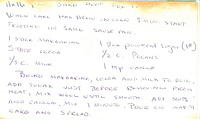 WHEN CAKE HAS BEEN IN OVEN 5 MIN. START
FROSTING IN SAME SAUCE PAN.
1 STICK MARGARINE 1 BOX POWDERED SUGAR (1#)
5 TBSP COCOA 1/2 C. PECANS
1/3 C. MILK 1 TSP VANILLA
BRING MARGARINE, COCOA AND MILK TO BOIL,
ADD SUGAR JUST BEFORE REMOVING FROM
HEAT, MIX WELL UNTIL SMOOTH. ADD NUTS
AND VANILLA, MIX 1 MINUTE. POUR ON HOT
CAKE AND SPREAD.